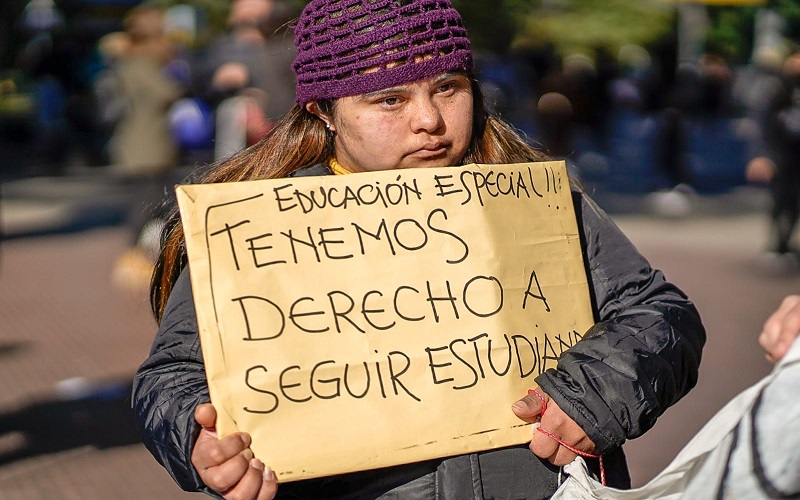 EDUCACIÓN ESPECIAL!!!
TENEMOS
DERECHO A
SEGUIR